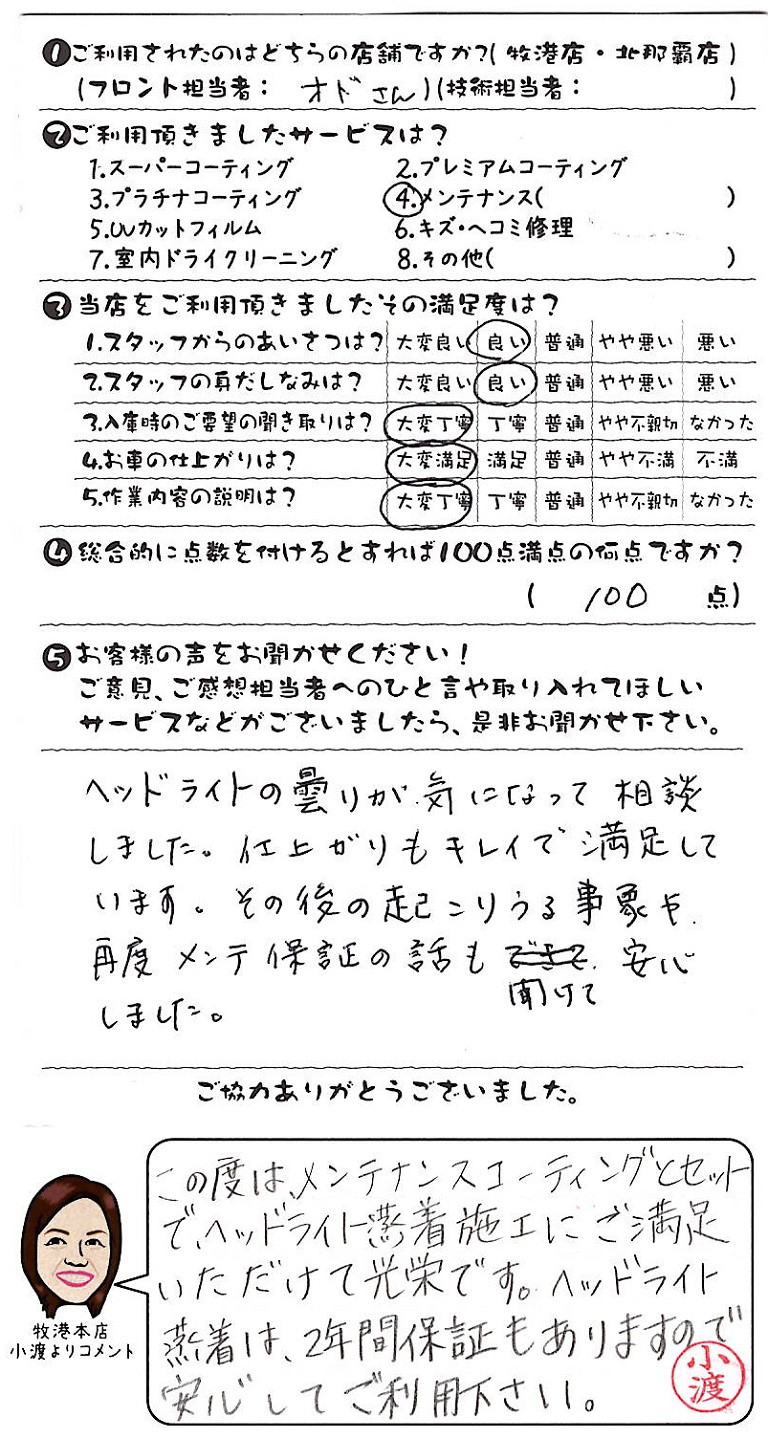 ❶ご利用されたのはどちらの店舗ですか?(牧港店・北那覇店)
(フロント担当者: オドさん)(技術担当者: )
❷ご利用頂きましたサービスは?
1.スーパーコーティング 2.プレミアムコーティング
3.プラチナコーティング 4.メンテナンス( )
5.UVカットフィルム 6.キズ・ヘコミ修理
7.室内ドライクリーニング 8.その他( )
❸当店をご利用頂きましたその満足度は?
1.スタッフからのあいさつは? 大変良い 良い 普通 やや悪い 悪い
2.スタッフの身だしなみは? 大変良い 良い 普通 やや悪い 悪い
3.入庫時のご要望の聞き取りは? 大変丁寧 丁寧 普通 やや不親切 なかった
4.お車の仕上がりは? 大変満足 満足 普通 やや不満 不満
5.作業内容の説明は? 大変丁寧 丁寧 普通 やや不親切 なかった
❹総合的に点数を付けるとすれば100点満点の何点ですか?
( 100 点)
❺お客様の声をお聞かせください!
ご意見、ご感想担当者へのひと言や取り入れてほしい
サービスなどがございましたら、是非お聞かせ下さい。
ヘッドライトの曇りが気になって相談
しました。仕上がりもキレイで満足して
います。その後の起こりうる事象や
再度メンテ保証の話も 安心
聞けて
しました。
ご協力ありがとうございました。
この度は、メンテナンスコーティングとセット
で、ヘッドライト蒸着施工にご満足
いただけて光栄です。ヘッドライト
蒸着は、2年間保証もありますので
安心してご利用下さい。
小渡
牧港本店
小渡よりコメント